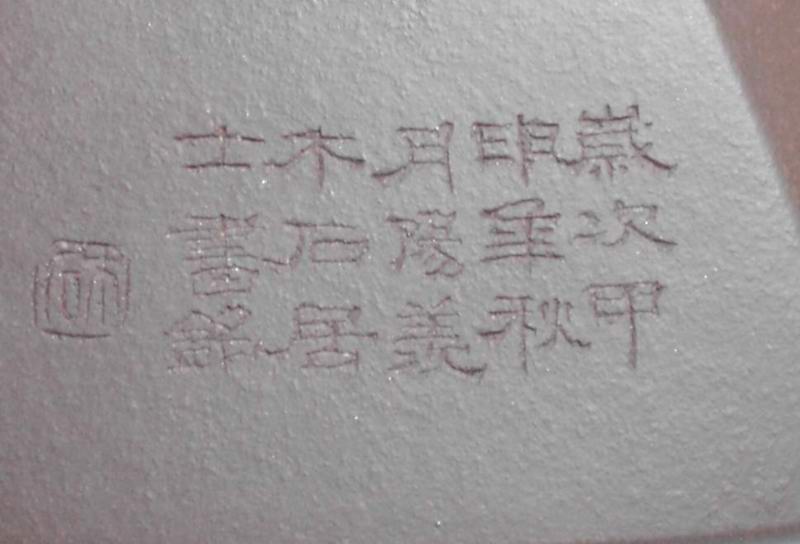 歲次甲
申年秋
月陽羨
木石居
士書銘